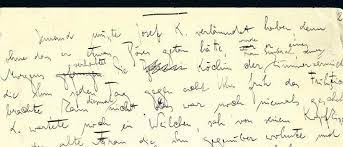 Jemand musste Josef K. verleumdet haben denn
ohne dass er etwas Böses getan hätte, wurde er eines
Morgens verhaftet. Die Köchin der Zimmervermieterin
die ihm jeden Tag gegen acht Uhr früh das Frühstück
brachte kam diesmal nicht. Das war noch niemals geschehn
K. wartete noch ein Weilchen, sah von seinem Kopfkissen
die alte Frau die ihm gegenüber wohnte und